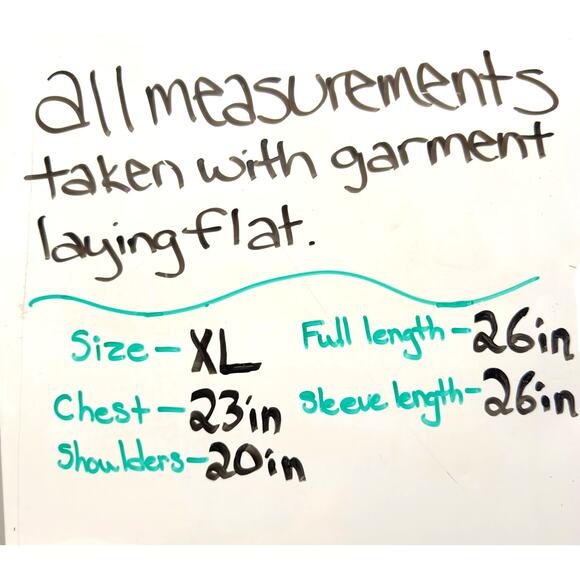 all measurements
taken with garment
laying flat.
Size - XL
Chest - 23in
Shoulders - 20in
Full length - 26in
Sleeve length - 26in